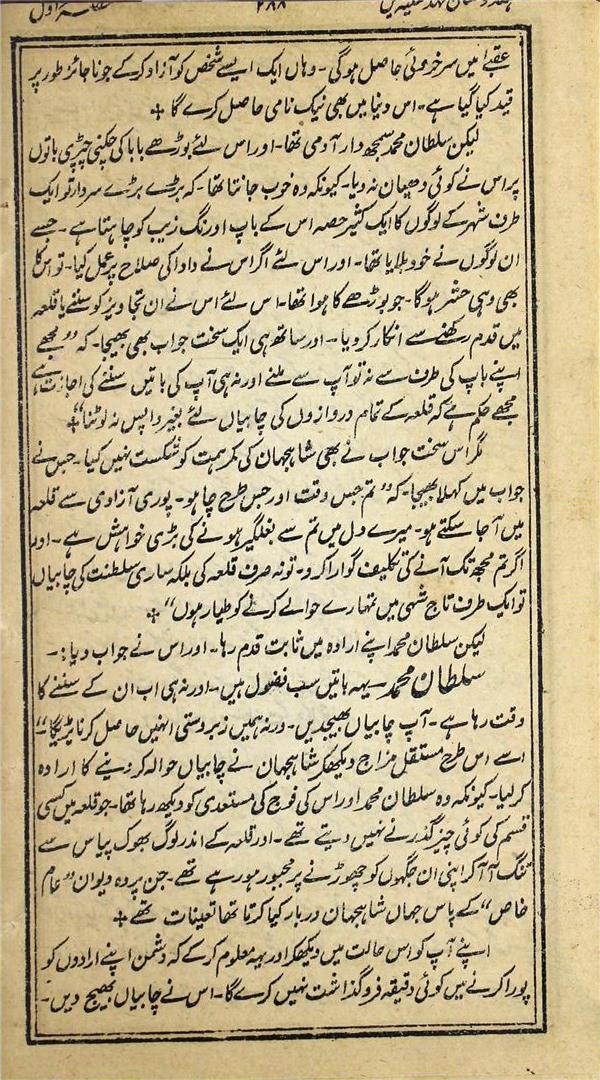 ۲۸۸
عقبےٰ میں سرخروئی حاصل ہوگی۔ وہاں ایک ایسے شخص کو آزاد کرکے جو ناجائز طور پر
قید کیا گیا ہے۔ اس دنیا میں بھی نیک نامی حاصل کرے گا
لیکن سلطان محمد سمجھ دار آدمی تھا۔ اور اس لئے بوڑھے بابا کی چکنی چپڑی باتوں
پر اس نے کوئی دھیان نہ دیا۔ کیونکہ وہ خوب جانتا تھا۔ کہ بڑے بڑے سردار تو ایک
طرف شہر کے لوگوں کا ایک کثیر حصہ اس کے باپ اورنگ زیب کو چاہتا ہے۔ جسے
ان لوگوں نے خود بلایا تھا۔ اور اس لئے اگر اس نے دادا کی صلاح پر عمل کیا۔ تو اس کا
بھی وہی حشر ہوگا۔ جو بوڑھے کا ہوا تھا۔ اس لئے اس نے ان تجاویز کو سننے یا قلعہ
میں قدم رکھنے سے انکار کر دیا۔ اور ساتھ ہی ایک سخت جواب بھی بھیجا۔ کہ "مجھے
اپنے باپ کی طرف سے نہ تو آپ سے ملنے اور نہ ہی آپ کی باتیں سننے کی اجازت ہے
مجھے حکم ہے کہ قلعہ کے تمام دروازوں کی چابیاں لئے بغیر واپس نہ لوٹنا"
مگر اس سخت جواب نے بھی شاہجہان کی کمر ہمت کو شکست نہیں کیا۔ جس نے
جواب میں کہلا بھیجا۔ کہ "تم جس وقت اور جس طرح چاہو۔ پوری آزادی سے قلعہ
میں آ جا سکتے ہو۔ میرے دل میں تم سے بغلگیر ہونے کی بڑی خواہش ہے۔ اور
اگر تم مجھ تک آنے کی تکلیف گوارا کرو۔ تو نہ صرف قلعہ کی بلکہ ساری سلطنت کی چابیاں
تو ایک طرف تاج شہی میں تمہارے حوالے کرنے کو طیار ہوں"
لیکن سلطان محمد اپنے ارادہ میں ثابت قدم رہا۔ اور اس نے جواب دیا:۔
سلطان محمد۔ یہہ باتیں سب فضول ہیں۔ اور نہ ہی اب ان کے سننے کا
وقت رہا ہے۔ آپ چابیاں بھیجدیں۔ ورنہ ہمیں زبردستی انہیں حاصل کرنا پڑیگا"
اسے اس طرح مستقل مزاج دیکھکر شاہجہان نے چابیاں حوالہ کر دینے کا ارادہ
کر لیا۔ کیونکہ وہ سلطان محمد اور اس کی فوج کی مستعدی کو دیکھ رہا تھا۔ جو قلعہ میں کسی
قسم کی کوئی چیز گذرنے نہیں دیتے تھے۔ اور قلعہ کے اندر لوگ بھوک پیاس سے
تنگ آ آ کر اپنی ان جگہوں کو چھوڑنے پر مجبور ہو رہے تھے۔ جن پر وہ دیوان "عام
خاص" کے پاس جہاں شاہجہان دربار کیا کرتا تھا تعینات تھے
اپنے آپ کو اس حالت میں دیکھکر اور یہہ معلوم کرکے کہ دشمن اپنے ارادوں کو
پورا کرنے میں کوئی دقیقہ فروگذاشت نہیں کرے گا۔ اس نے چابیاں بھیج دیں۔